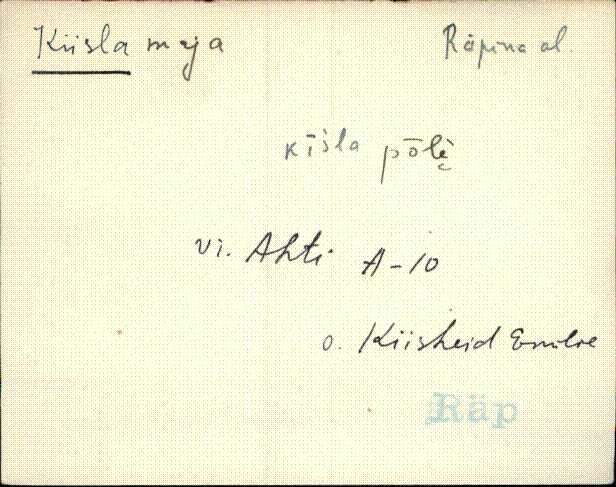 Kiisla maja Räpina al.
kīsla pōlè
vi. Ahti A-10
o. Kiisheid
Räp